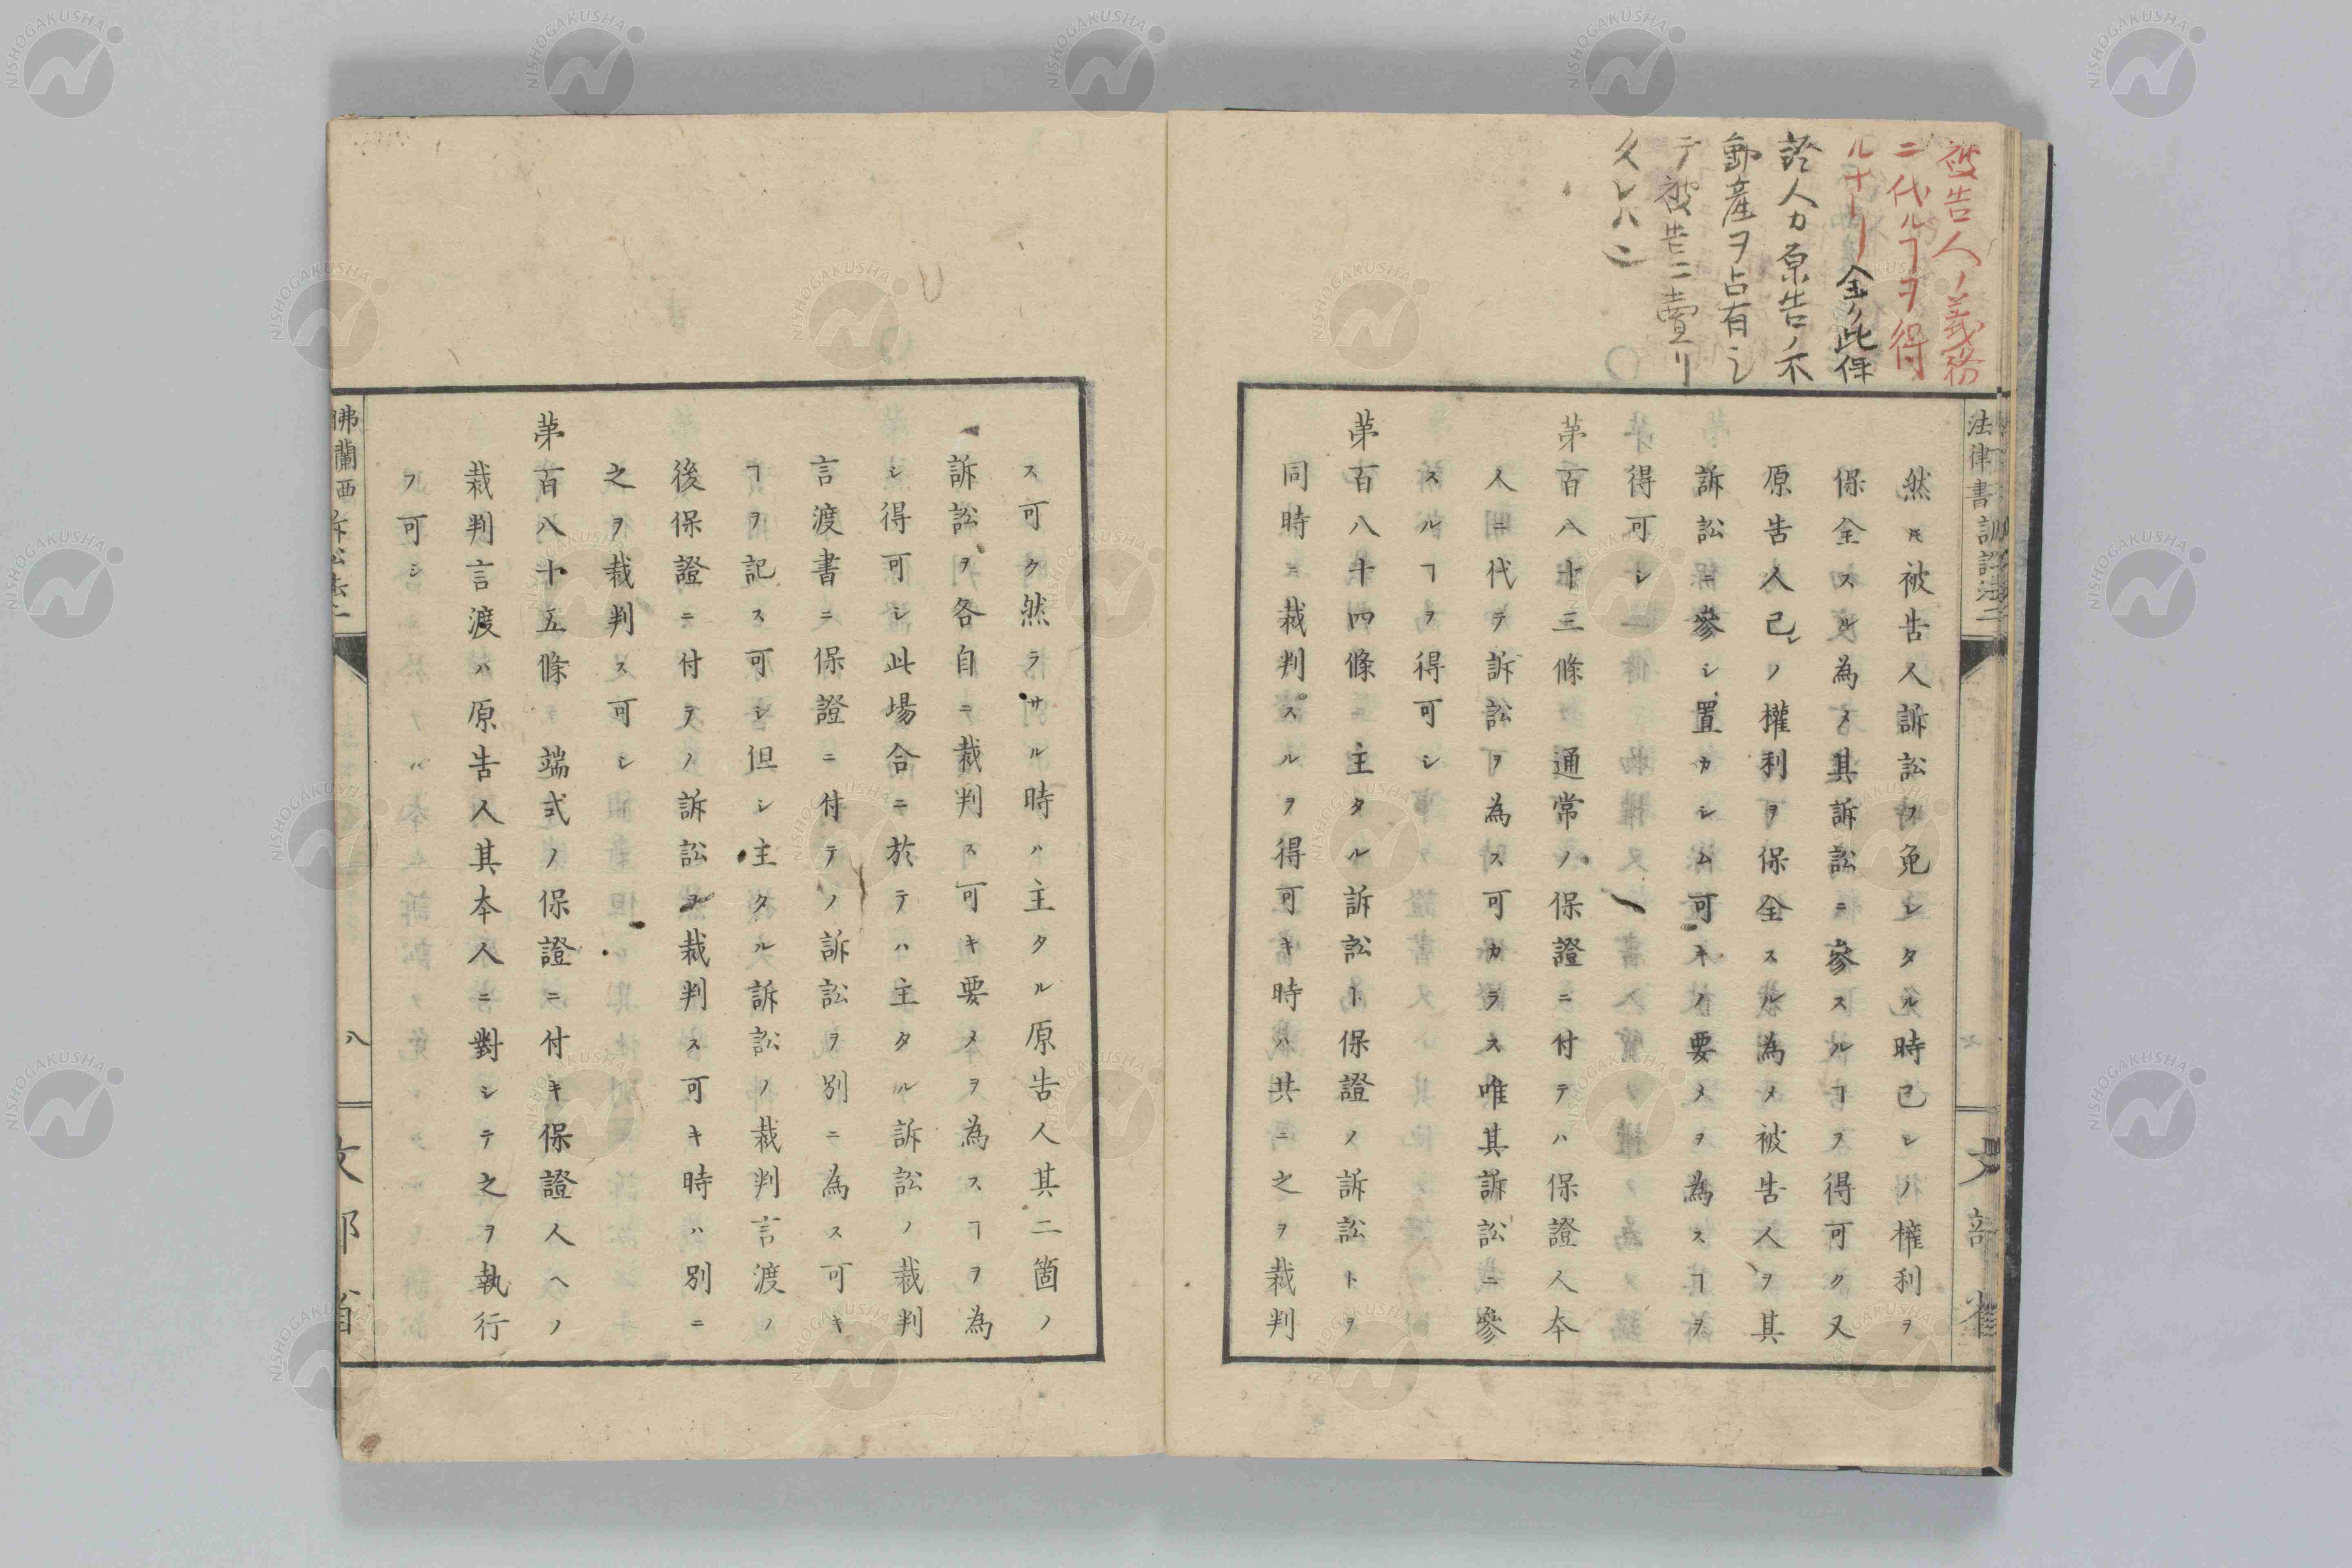 被告人ノ義務
ニ代ルヿヲ得
ルナリ
金ク此保
證人カ原告ノ不
動産ヲ占有シ
テ被告ニ賣
タレハニ
然𪜈被告人訴訟ヲ免レタル時己レノ權利ヲ
保全スル為メ其訴訟ニ參スルヿヲ得可ク又
原告人己レノ權利ヲ保全スル為メ被告人ヲ其
訴訟ニ參シ置カシム可キノ要メヲ為スヿヲ
得可シ
第百八十三條 通常ノ保證ニ付テハ保證人本
人ニ代テ訴訟ヲ為ス可カラス唯其訴訟ニ參
スルヿヲ得可シ
第百八十四條 主タル訴訟ト保證ノ訴訟トヲ
同時ニ裁判スルヲ得可キ時ハ共ニ之ヲ裁判
ス可ク然ラサル時ハ主タル原告人其二箇ノ
訴訟ヲ各自ニ裁判ス可キ要メヲ為スヿヲ為
シ得可シ此場合ニ於テハ主タル訴訟ノ裁判
言渡書ニ保證ニ付テノ訴訟ヲ別ニ為ス可キ
ヿヲ記ス可シ但シ主タル訴訟ノ裁判言渡ノ
後保證ニ付テノ訴訟ヲ裁判ス可キ時ハ別ニ
之ヲ裁判ス可シ
第百八十五條 端式ノ保證ニ付キ保證人ヘノ
裁判言渡ハ原告人其本人ニ對シテ之ヲ執行
フ可シ
佛蘭西訴訟法
八
文部省
NISHOGAKUSHA